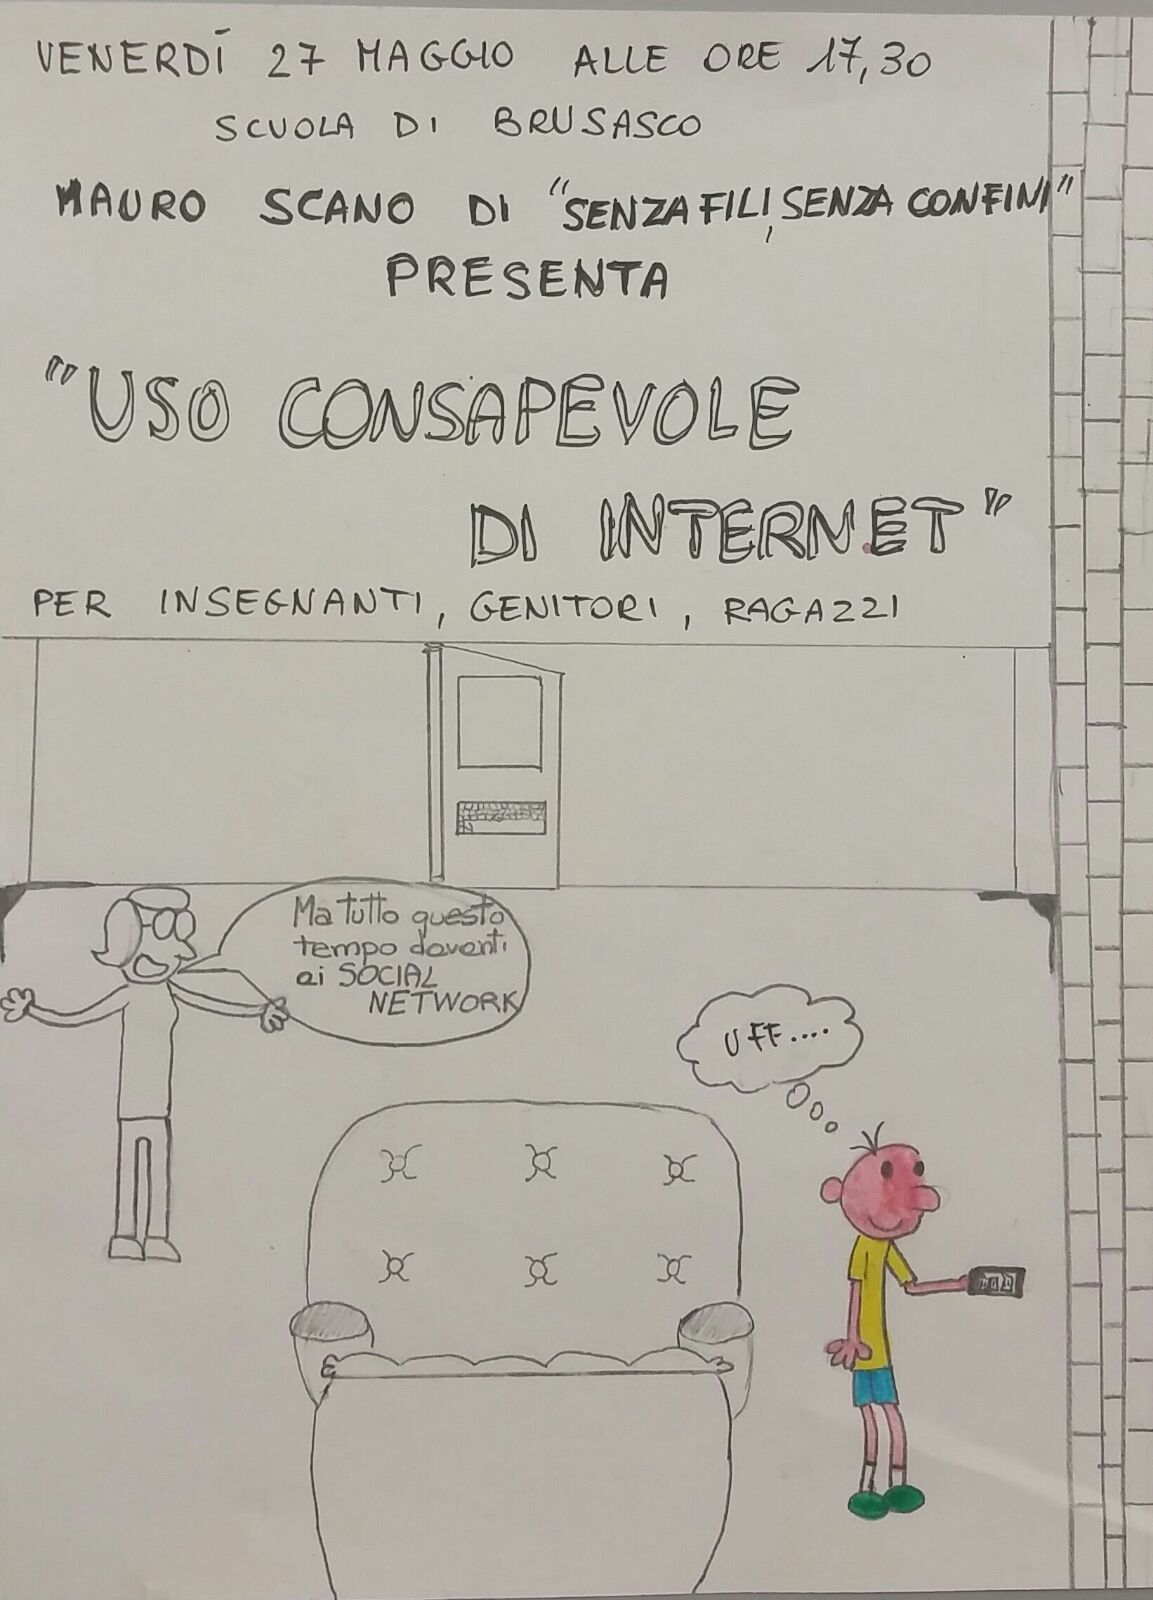 VENERDÌ 27 MAGGIO ALLE ORE 17,30
SCUOLA DI BRUSASCO
MAURO SCANO DI "SENZA FILI, SENZA CONFINI"
PRESENTA
"USO CONSAPEVOLE
DI INTERNET"
PER INSEGNANTI, GENITORI, RAGAZZI
Ma tutto questo
tempo davanti
ai SOCIAL
NETWORK
UFF....